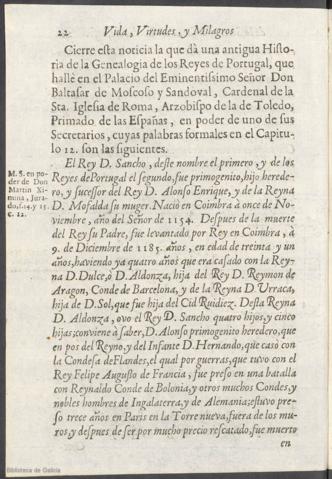 22 Vida, Virtudes, y Milagros
Cierre esta noticia la que dà una antigua Histo-
ria de la Genealogia de los Reyes de Portugal, que
hallè en el Palacio del Eminentissimo Señor Don
Baltasar de Moscoso y Sandoval, Cardenal de la
Sta. Iglesia de Roma, Arzobispo de la de Toledo,
Primado de las Españas, en poder de uno de sus
Secretarios, cuyas palabras formales en el Capitu-
lo 12. son las siguientes.
El Rey D. Sancho, deste nombre el primero, y de los
Reyes de Portugal el segundo, fue primogenito, hijo herede-
ro, y sucessor del Rey D. Alonso Enrique, y de la Reyna
D. Mofalda su muger. Naciò en Coimbra à once de No-
viembre, año del Señor de 1154. Despues de la muerte
del Rey su Padre, fue levantado por Rey en Coimbra, à
9. de Diciembre de 1185. años, en edad de treinta y un
años, haviendo ya quatro años que era casado con la Rey-
na D. Dulce, ò D. Aldonza, hija del Rey D. Reymon de
Aragon, Conde de Barcelona, y de la Reyna D. Urraca,
hija de D. Sol, que fue hija del Cid Ruidiez. Desta Reyna
D. Aldonza, ovo el Rey D. Sancho quatro hijos, y cinco
hijas; conviene à saber, D. Alonso primogenito heredero, que
en pos del Reyno, y del Infante D. Hernando, que casò con
la Condesa de Flandes, el qual por guerras, que tuvo con el
Rey Felipe Augusto de Francia, fue preso en una batalla
con Reynaldo Conde de Bolonia, y otros muchos Condes, y
nobles hombres de Ingalaterra, y de Alemania; estuvo pre-
so trece años en Paris en la Torre nueva, fuera de los mu-
ros, y despues de ser por mucho precio rescatado, fue muerto
en
M. S. en po-
der de Don
Martin Xi-
mina, Jura-
do, f. 14. y 15.
c. 12.
Biblioteca de Galicia